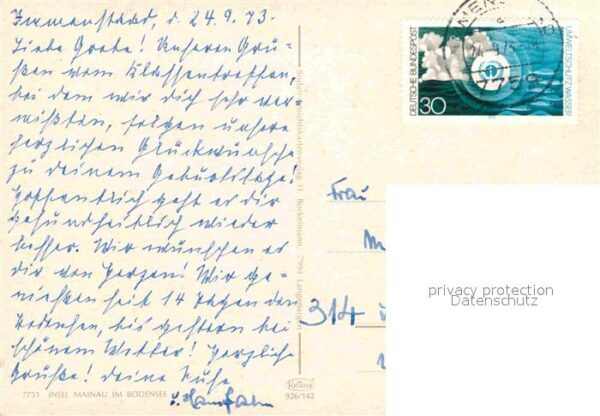 Immenstaad, d. 24.9.73.
Liebe Grete! Unseren Grü-
ßen vom Klassentreffen,
bei dem wir dich sehr ver-
mißten, folgen unsere
herzlichen Glückwünsche
zu deinem Geburtstage.
Hoffentlich geht es dir
gesundheitlich wieder
besser. Wir wünschen es
dir von Herzen! Wir ge-
nießen seit 14 Tagen den
Bodensee, bis gestern bei
schönem Wetter! Herzliche
Grüße! deine
u.
7751 INSEL MAINAU IM BODENSEE
H. Bockelmann, 7994 Langenargen
926/142
DEUTSCHE BUNDESPOST
30
UMWELTSCHUTZ: WASSER
7759
Frau
314
privacy protection
Datenschutz